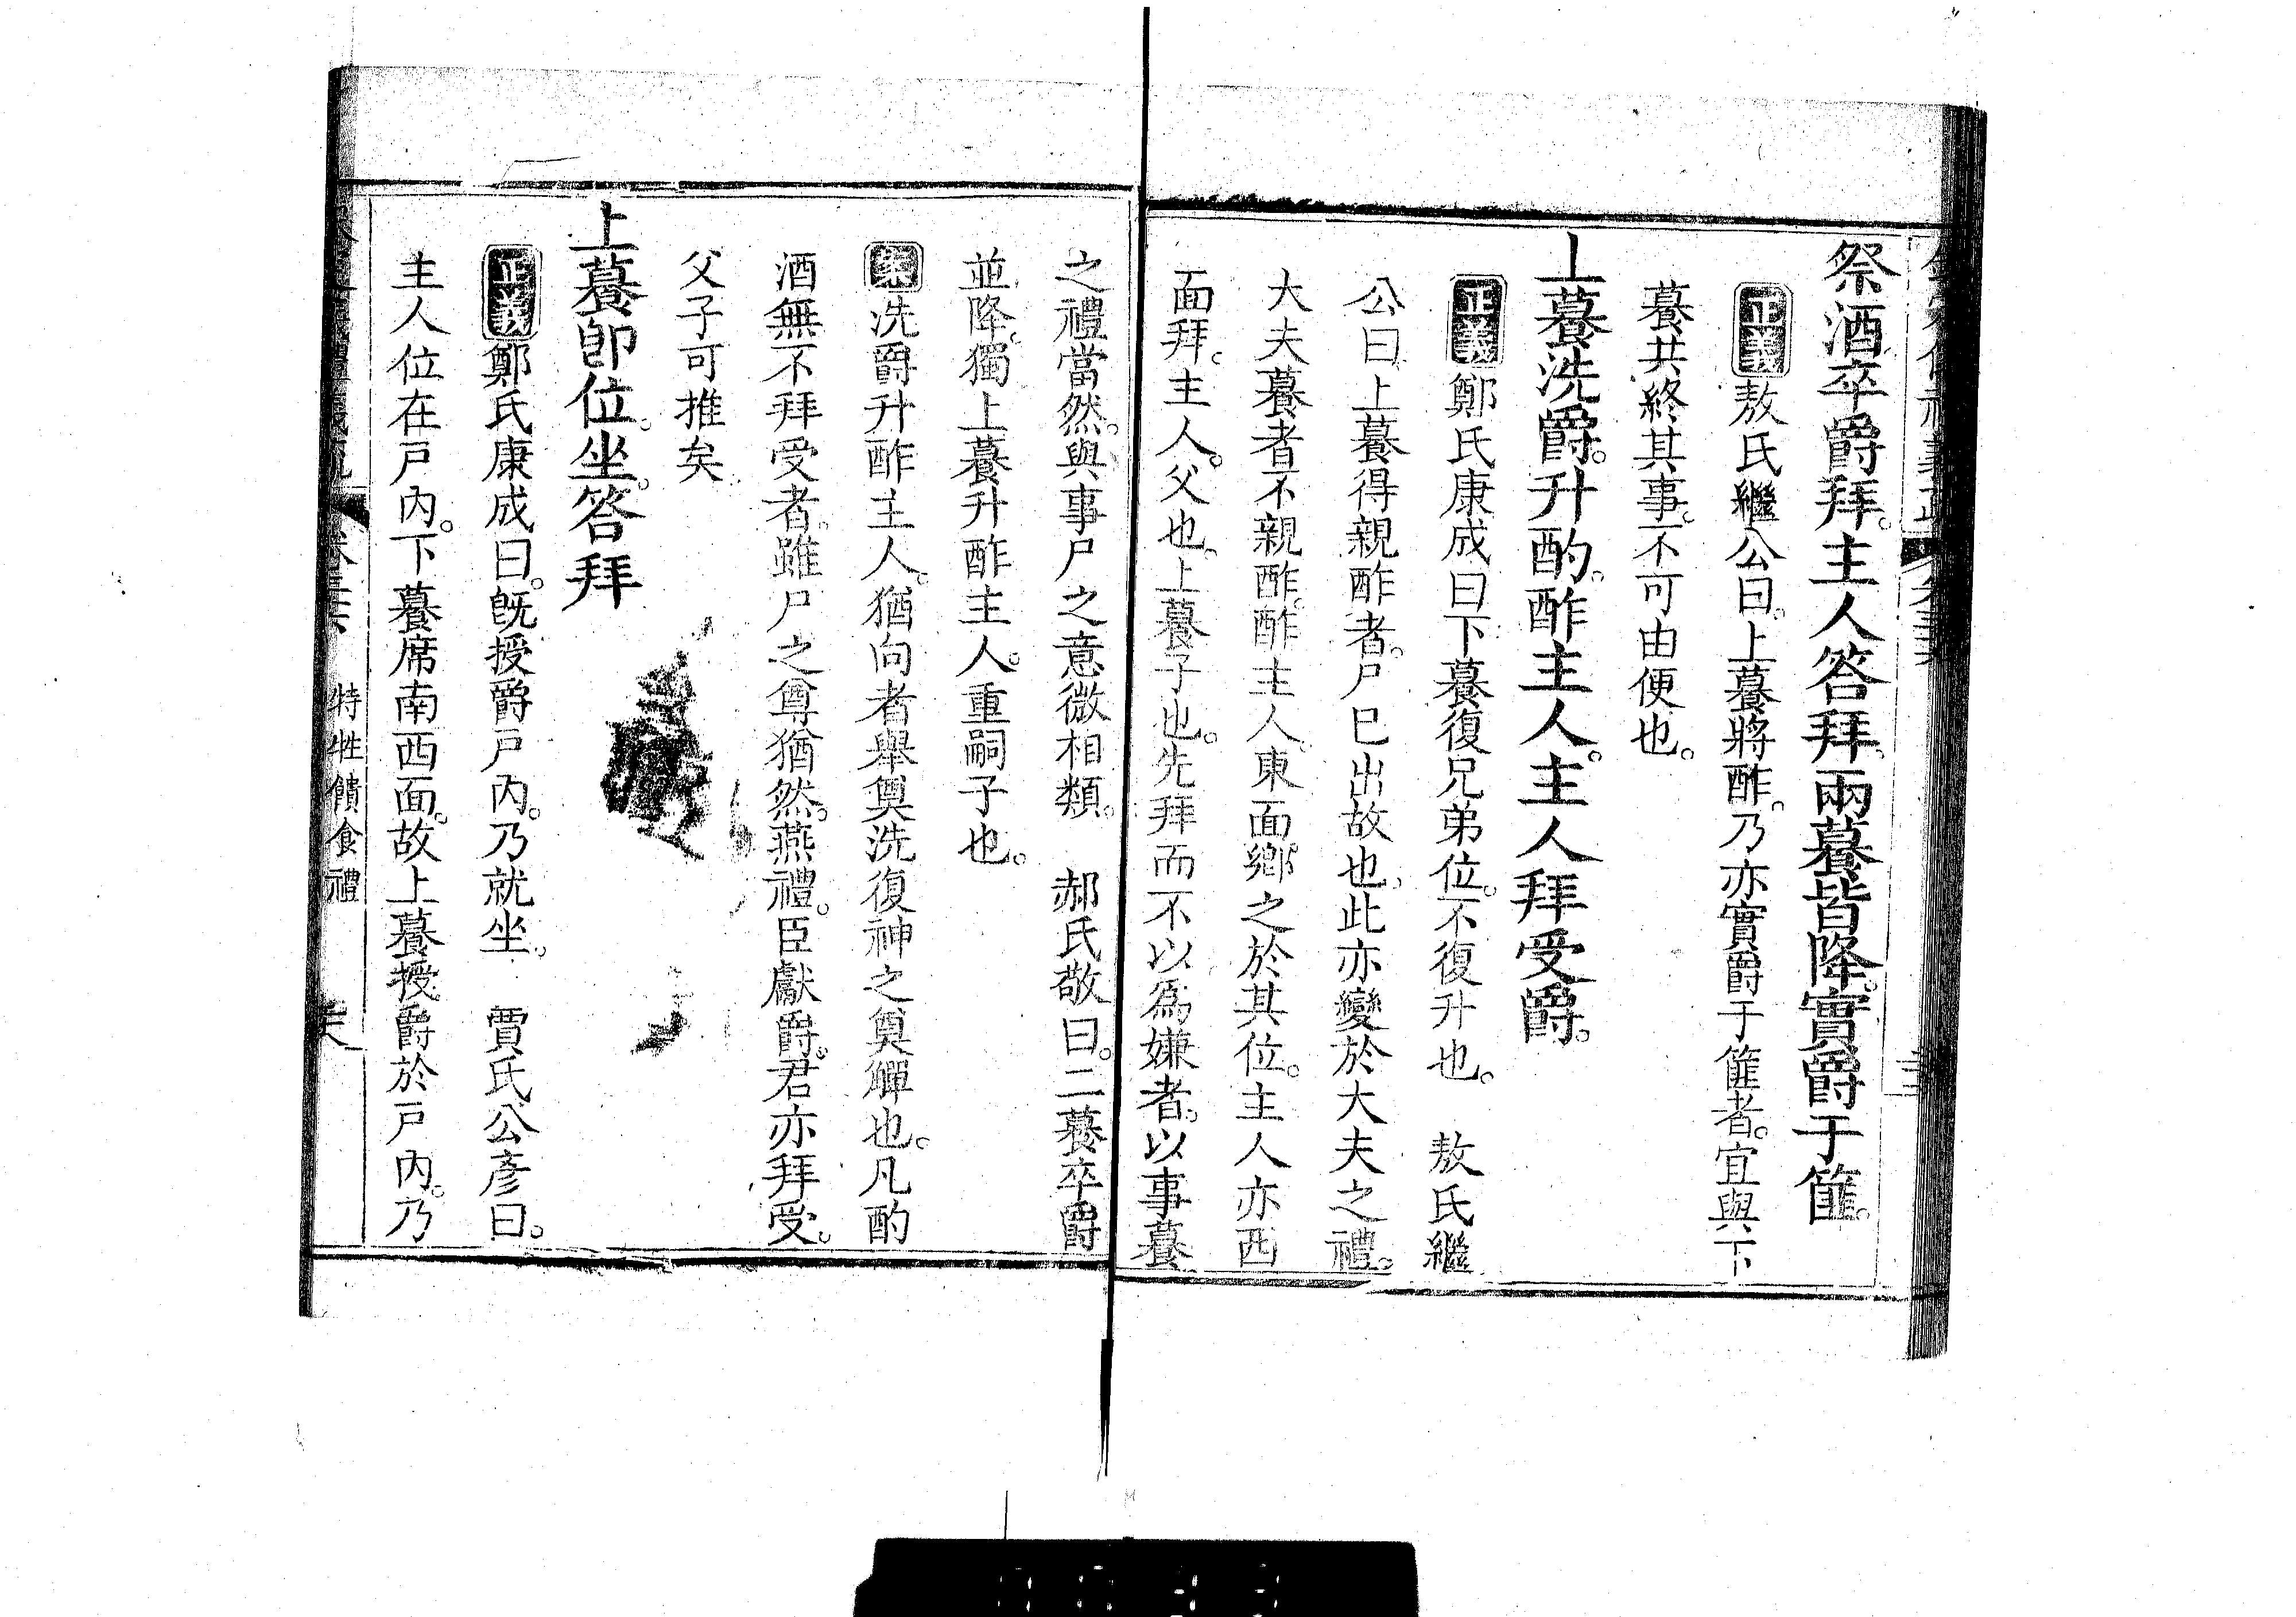 祭酒卒爵拜。主人答拜。兩䭕皆降。實爵于篚。
正義敖氏繼公曰。上䭕將酢。乃亦實爵于篚者。宜與下
䭕共終其事。不可由便也。
上䭕洗爵。升酌。酢主人。主人拜受爵。
正義鄭氏康成曰下䭕復兄弟位。不復升也。 敖氏繼
公曰。上䭕得親酢者。尸已出故也。此亦變於大夫之禮。
大夫䭕者不親酢。酢主人。東面鄉之於其位。主人亦西
面拜。主人。父也。上䭕子也。先拜而不以爲嫌者。以事䭕
之禮當然。與事尸之意微相類。 郝氏敬曰。二䭕卒爵
並降。獨上䭕升酢主人。重嗣子也。
案洗爵升酢主人。猶向者舉奠洗復神之奠觶也。凡酌
酒無不拜受者。雖尸之尊猶然。燕禮。臣獻爵。君亦拜受。
父子可推矣
上䭕卽位。坐。答拜
正義鄭氏康成曰。旣授爵戸內。乃就坐。 賈氏公彥曰。
主人位在戸內。下䭕席南西面。故上䭕授爵於戸內。乃
特牲饋食禮